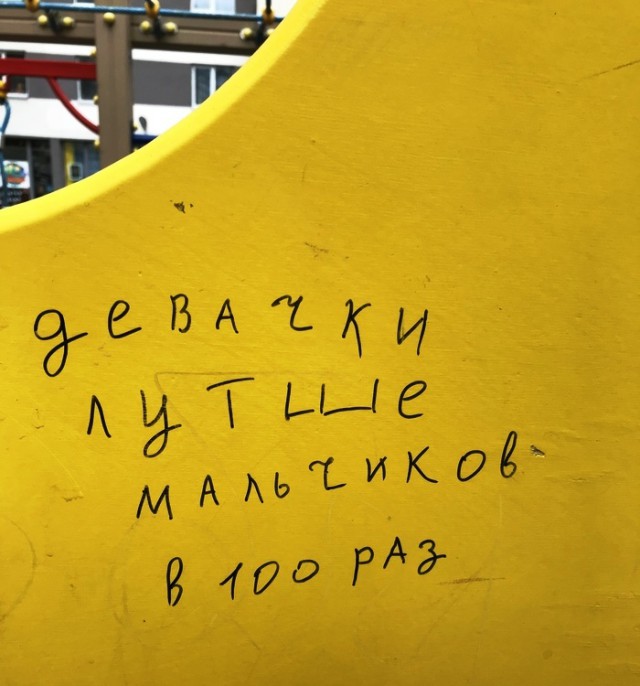 девачки
лутше
мальчиков
в 100 раз